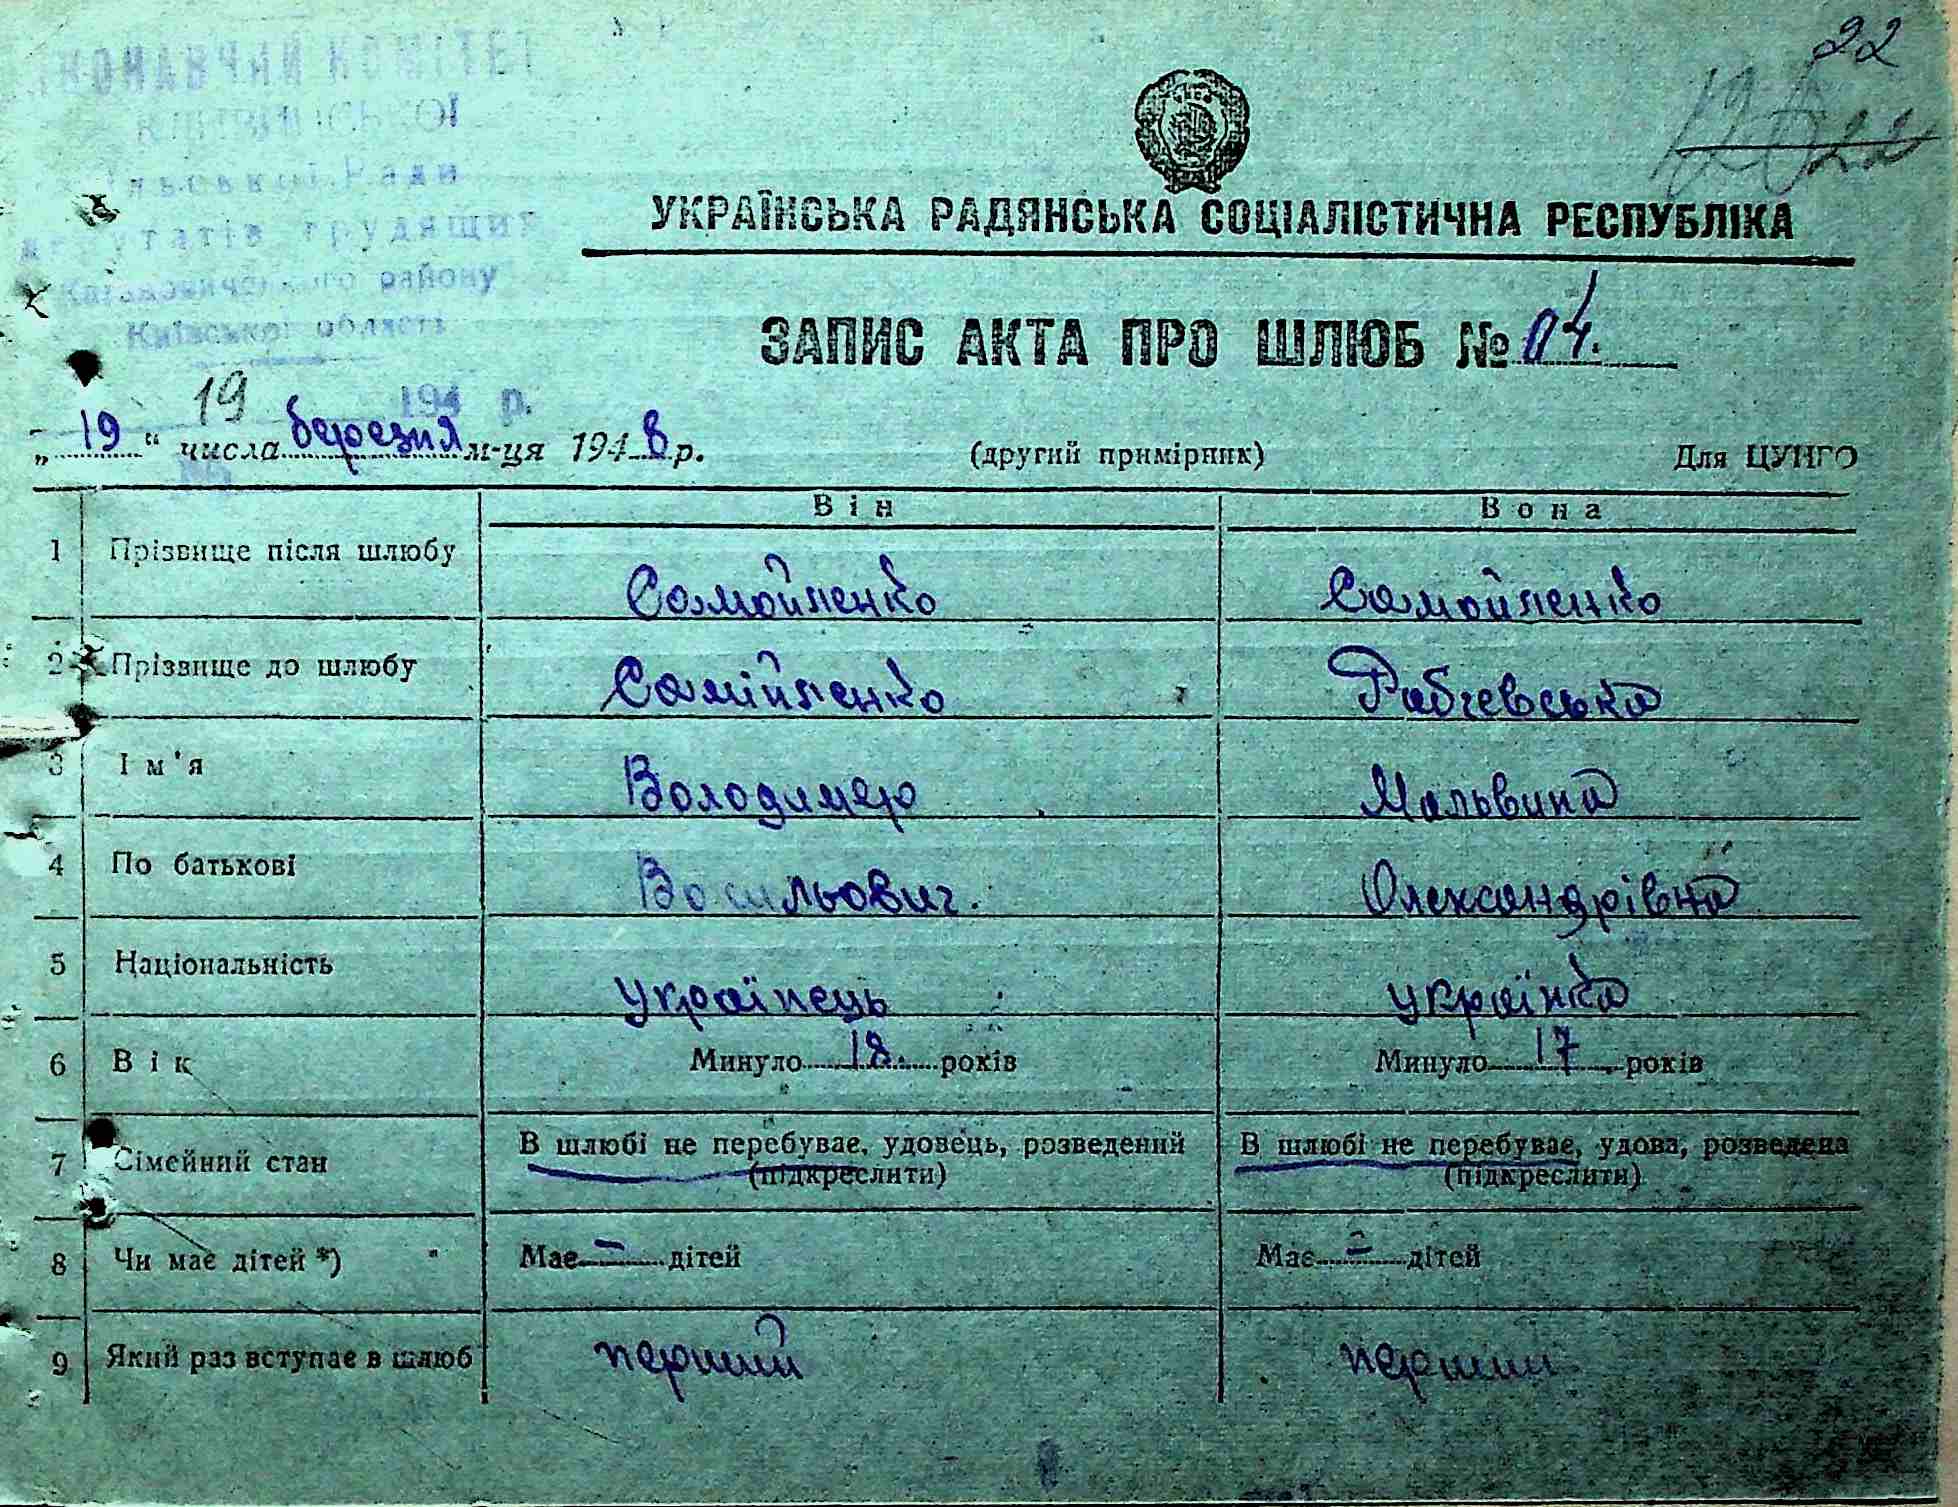 22
КОНАВЧИЙ КОМІТЕТ
Ради
депутатів трудящих
району
Київської області
УКРАЇНСЬКА РАДЯНСЬКА СОЦІАЛІСТИЧНА РЕСПУБЛІКА
ЗАПИС АКТА ПРО ШЛЮБ № 04.
19 194 р.
„19“ числа березня м-ця 1948 р. (другий примірник) Для ЦУНГО
Він Вона
1 Прізвище після шлюбу Самойленко Самойленко
2 Прізвище до шлюбу Самійленко Рабчевська
3 Ім'я Володимер Мальвина
4 По батькові Васильович. Олександрівна
5 Національність українець українка
6 Вік Минуло 18. років Минуло 17 років
7 Сімейний стан В шлюбі не перебуває, удовець, розведений В шлюбі не перебуває, удова, розведена
(підкреслити) (підкреслити)
8 Чи має дітей *) Має - дітей Має - дітей
9 Який раз вступає в шлюб перший перший